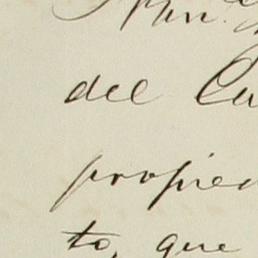 del Cu
propied
to, que